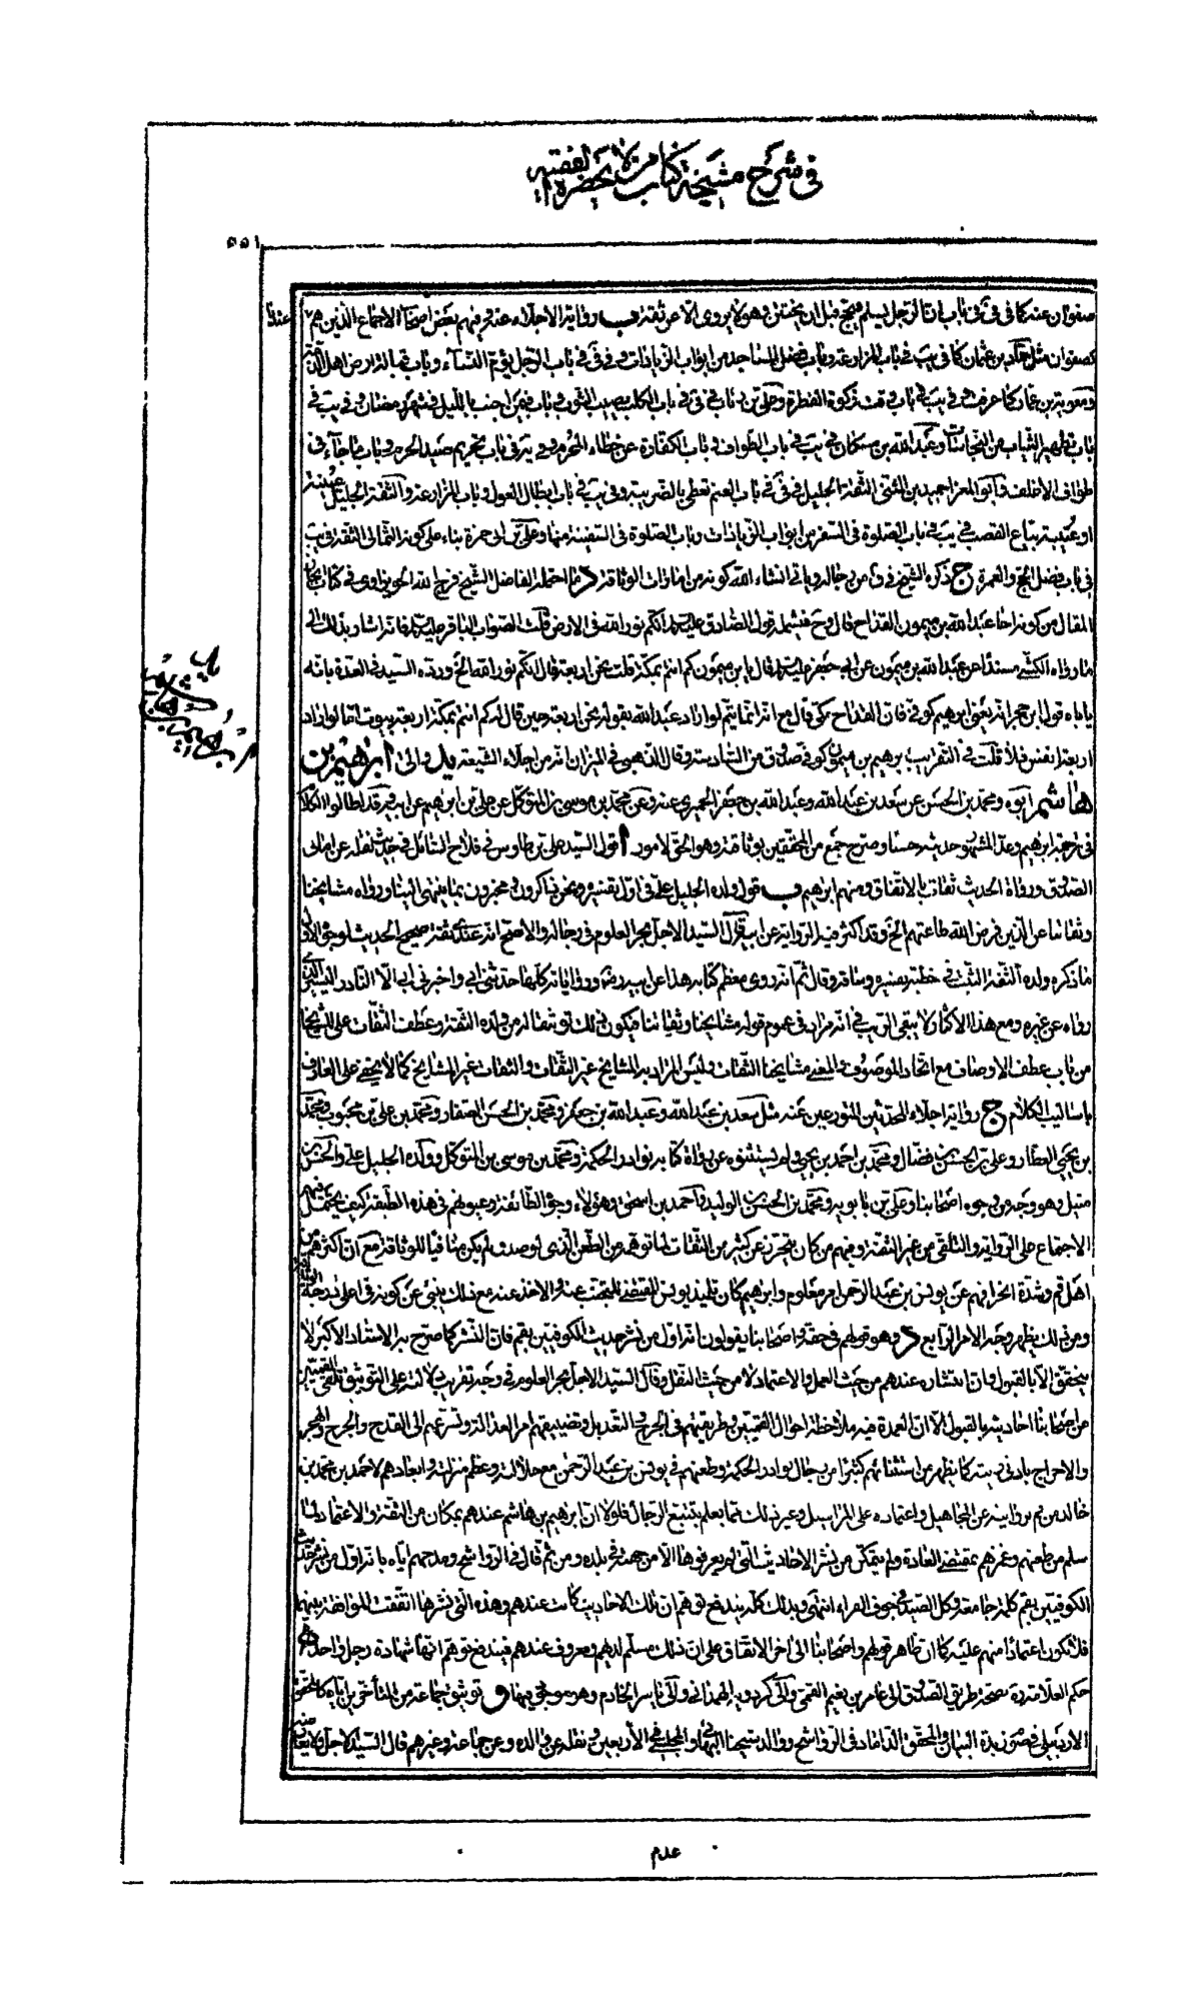 في شرح مشيخة كتاب من لا يحضره الفقيه
٥٥١
صفوان عنه كما في في باب ان الرجل يسلم فيحج قبل ان يختتن وهو لا يروي الا عن ثقة ب رواية الاجلاء عنه وفيهم بعض اصحاب الاجماع الذين هم عندنا
كصفوان مثل حماد بن عثمان كما في يب في باب المزارعة وباب فضل المساجد من ابواب الزيادات وفي في باب الرجل يؤم النساء وباب قبالة ارض اهل الذمة
ومعوية بن عمار كما عرفت وفي يب في باب وقت زكوة الفطرة وعلي بن رئاب في في في باب الكلب يصيب الثوب وباب فيمن اجنب بالليل في شهر رمضان وفي يب في
باب تطهير الثياب من النجاسات وعبد الله بن مسكان في يب في باب الطواف وفي باب الكفارة عن خطاء المحرم وفي باب تحريم صيد الحرم وباب ما جاء في
طواف الاخلف وابو المعزا حميد بن المثنى الثقة الجليل في في باب الغنم تعطى بالضريبة وفي يب في باب ابطال العول وباب المزارعة والثقة الجليل عيينة
او عتيبة بياع القصب في يب في باب الصلوة في السفر من ابواب الزيادات وباب الصلوة في السفينة منها وعلي بن ابي حمزة بناء على كونه الثمالي الثقة في يب
في باب فضل الحج والعمرة ج ذكره الشيخ في ق من رجاله ويأتي انشاء الله كونه من امارات الوثاقة د ما احتمله الفاضل الشيخ فرج الله الحويزاوي في كتاب ايجاز
المقال من كونه اخا عبد الله بن ميمون القداح قال وح فيشمله قول الصادق عليه السلام انكم نور الله في الارض قلت الصواب الباقر عليه السلام فانه اشار بذلك الى
ما رواه الكشي مسندا عن عبد الله بن ميمون عن ابي جعفر عليه السلام قال يا بن ميمون كم انتم بمكة قلت نحن اربعة قال انكم نور الله الخ ورده السيد في العدة بانه
ياباه قول ابن حجر انه يعني ابرهيم كوفي فان القداح مكي قال مع انه انما يتم لو اراد عبد الله بقوله نحن اربعة حين قال له كم انتم بمكة اربعة بيوت اما لو اراد
اربعة انفس فلا قلت في التقريب ابرهيم بن ميمون كوفي صدوق من السادسة وقال الذهبي في الميزان انه من اجلاء الشيعة يد والى ابرهيم بن
هاشم ابوه ومحمد بن الحسن عن سعد بن عبد الله وعبد الله بن جعفر الحميري عنه وعن محمد بن موسى بن المتوكل عن علي بن ابرهيم عن ابيه قد اطالوا الكلام
في ترجمة ابرهيم وعد المشهور حديثه حسنا وصرح جمع من المحققين بوثاقته وهو الحق لامور ا قول السيد علي بن طاوس في فلاح السائل في حديث نقله عن امالي
الصدوق ورواة الحديث ثقات بالاتفاق ومنهم ابرهيم ب قول ولده الجليل علي في اول تفسيره ونحن ذاكرون ومخبرون بما ينتهي الينا ورواه مشايخنا
وثقاتنا عن الذين فرض الله طاعتهم الخ وقد اكثر فيه الرواية عن ابيه قال السيد الاجل بحر العلوم في رجاله والاصح انه عندي ثقة صحيح الحديث لوجوه الاول
ما ذكره ولده الثقة الثبت في خطبة تفسيره وساقه وقال ثم انه روى معظم كتابه هذا عن ابيه رض ورواياته كلها حدثني ابي واخبرني ابي الا النادر اليسير الذي
رواه عن غيره ومع هذا الاكثار لا يبقى الريب في انه مراد في عموم قوله مشايخنا وثقاتنا فيكون ذلك توثيقا له من ولده الثقة وعطف الثقات على المشايخ
من باب عطف الاوصاف مع اتحاد الموصوف والمعنى مشايخنا الثقات وليس المراد به المشايخ غير الثقات والثقات غير المشايخ كما لا يخفى على العارف
باساليب الكلام ج رواية اجلاء المحدثين المتورعين عنه مثل سعد بن عبد الله وعبد الله بن جعفر ومحمد بن الحسن الصفار ومحمد بن علي بن محبوب ومحمد
بن يحيى العطار وعلي بن الحسن بن فضال ومحمد بن احمد بن يحيى ولم يستثنوه عن رواة كتابه نوادر الحكمة ومحمد بن موسى بن المتوكل وولده الجليل علي والحسن بن
متيل وهو وجه من وجوه اصحابنا وعلي بن بابويه ومحمد بن الحسن بن الوليد واحمد بن اسحق وهؤلاء وجوه الطائفة وعيونهم في هذه الطبقة كيف يحتمل فيهم
الاجتماع على الرواية والتلقي من غير الثقة وفيهم من كان يتحرز عن كثير من الثقات لما توهمه من الطعن الذي لو صدق لم يكن منافيا للوثاقة مع ان اكثرهم من
اهل قم وشدة انحرافهم عن يونس بن عبد الرحمن امر معلوم وابرهيم كان تلميذ يونس المقتضي للتجنب عنه والاخذ عنه مع ذلك ينبئ عن كونه في اعلى درجة الوثاقة
ومن ذلك يظهر وجه الامر الرابع د وهو قولهم في حقه واصحابنا يقولون انه اول من نشر حديث الكوفيين بقم فان النشر كما صرح به الاستاد الاكبر لا
يتحقق الا بالقبول وان انتشاره عندهم من حيث العمل والاعتماد لا من حيث النقل وقال السيد الاجل بحر العلوم في وجه تقريب دلالته على التوثيق تلقي القميين
من اصحابنا احاديثه بالقبول الا ان العمدة فيه ملاحظة احوال القميين وطريقتهم في الجرح والتعديل وتضييقهم امر العدالة وتسرعهم الى القدح والجرح والهجر
والاخراج بادنى ريبة كما يظهر من استثنائهم كثيرا من رجال نوادر الحكمة وطعنهم في يونس بن عبد الرحمن مع جلالته وعظم منزلته وابعادهم لاحمد بن محمد بن
خالد من قم لروايته عن المجاهيل واعتماده على المراسيل وغير ذلك مما يعلم بتتبع الرجال فلولا ان ابرهيم بن هاشم عندهم بمكان من الثقة والاعتماد لما
سلم من طعنهم وغمزهم بمقتضى العادة ولم يتمكن من نشر الاحاديث التي لم يعرفوها الا من جهته في بلده ومن ثم قال في الرواشح ومدحهم اياه بانه اول من نشر حديث
الكوفيين بقم كلمة جامعة وكل الصيد في جوف الفراء انتهى وبذلك كله يندفع توهم ان تلك الاحاديث كانت عندهم وهذه التي نشرها اتفقت الموافقة بينهما
فلا تكون اعتمادا منهم عليه كما ان ظاهر قولهم واصحابنا الى اخره الاتفاق على ان ذلك مسلم لديهم ومعروف عندهم فيندفع توهم انها شهادة رجل واحد ه
حكم العلامة ره بصحة طريق الصدوق الى عامر بن نعيم القمي والى كردويه الهمداني والى ياسر الخادم وهو موجود فيها و توثيق جماعة من المتأخرين اياه كالمحقق
الاردبيلي في صوم زبدة البيان والمحقق الداماد في الرواشح ووالد شيخنا البهائي والمجلسي في الاربعين ونقله عن والده وعن جماعة وغيرهم قال السيد الاجل ولا يعارض
علم